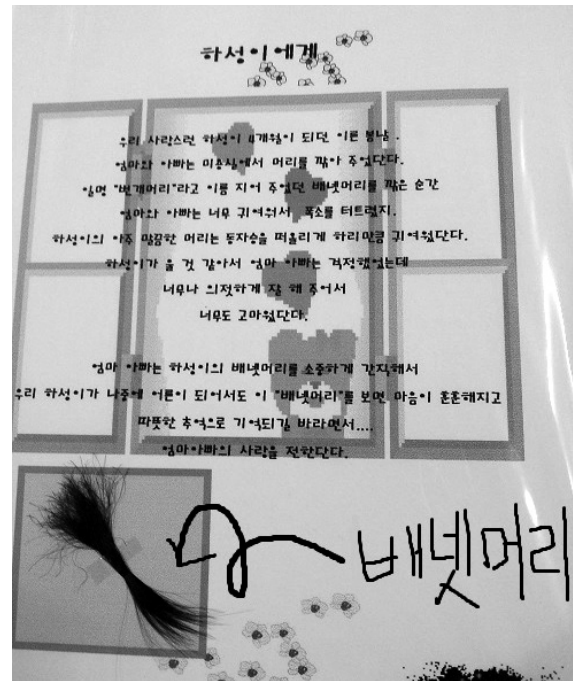 하성이에게
우리 사랑스런 하성이 4개월이 되던 이른 봄날.
엄마와 아빠는 미용실에서 머리를 깎아 주었단다.
일명 "번개머리"라고 이름 지어 주었던 배냇머리를 깎은 순간
엄마와 아빠는 너무 귀여워서 폭소를 터트렸지.
하성이의 아주 말끔한 머리는 동자승을 떠올리게 하리만큼 귀여웠단다.
하성이가 울 것 같아서 엄마 아빠는 걱정했었는데
너무나 의젓하게 잘 해 주어서
너무도 고마웠단다.
엄마 아빠는 하성이의 배넷머리를 소중하게 간직해서
우리 하성이가 나중에 어른이 되어서도 이 "배넷머리"를 보면 마음이 훈훈해지고
따뜻한 추억으로 기억되길 바라면서....
엄마아빠의 사랑을 전한단다.
배넷머리